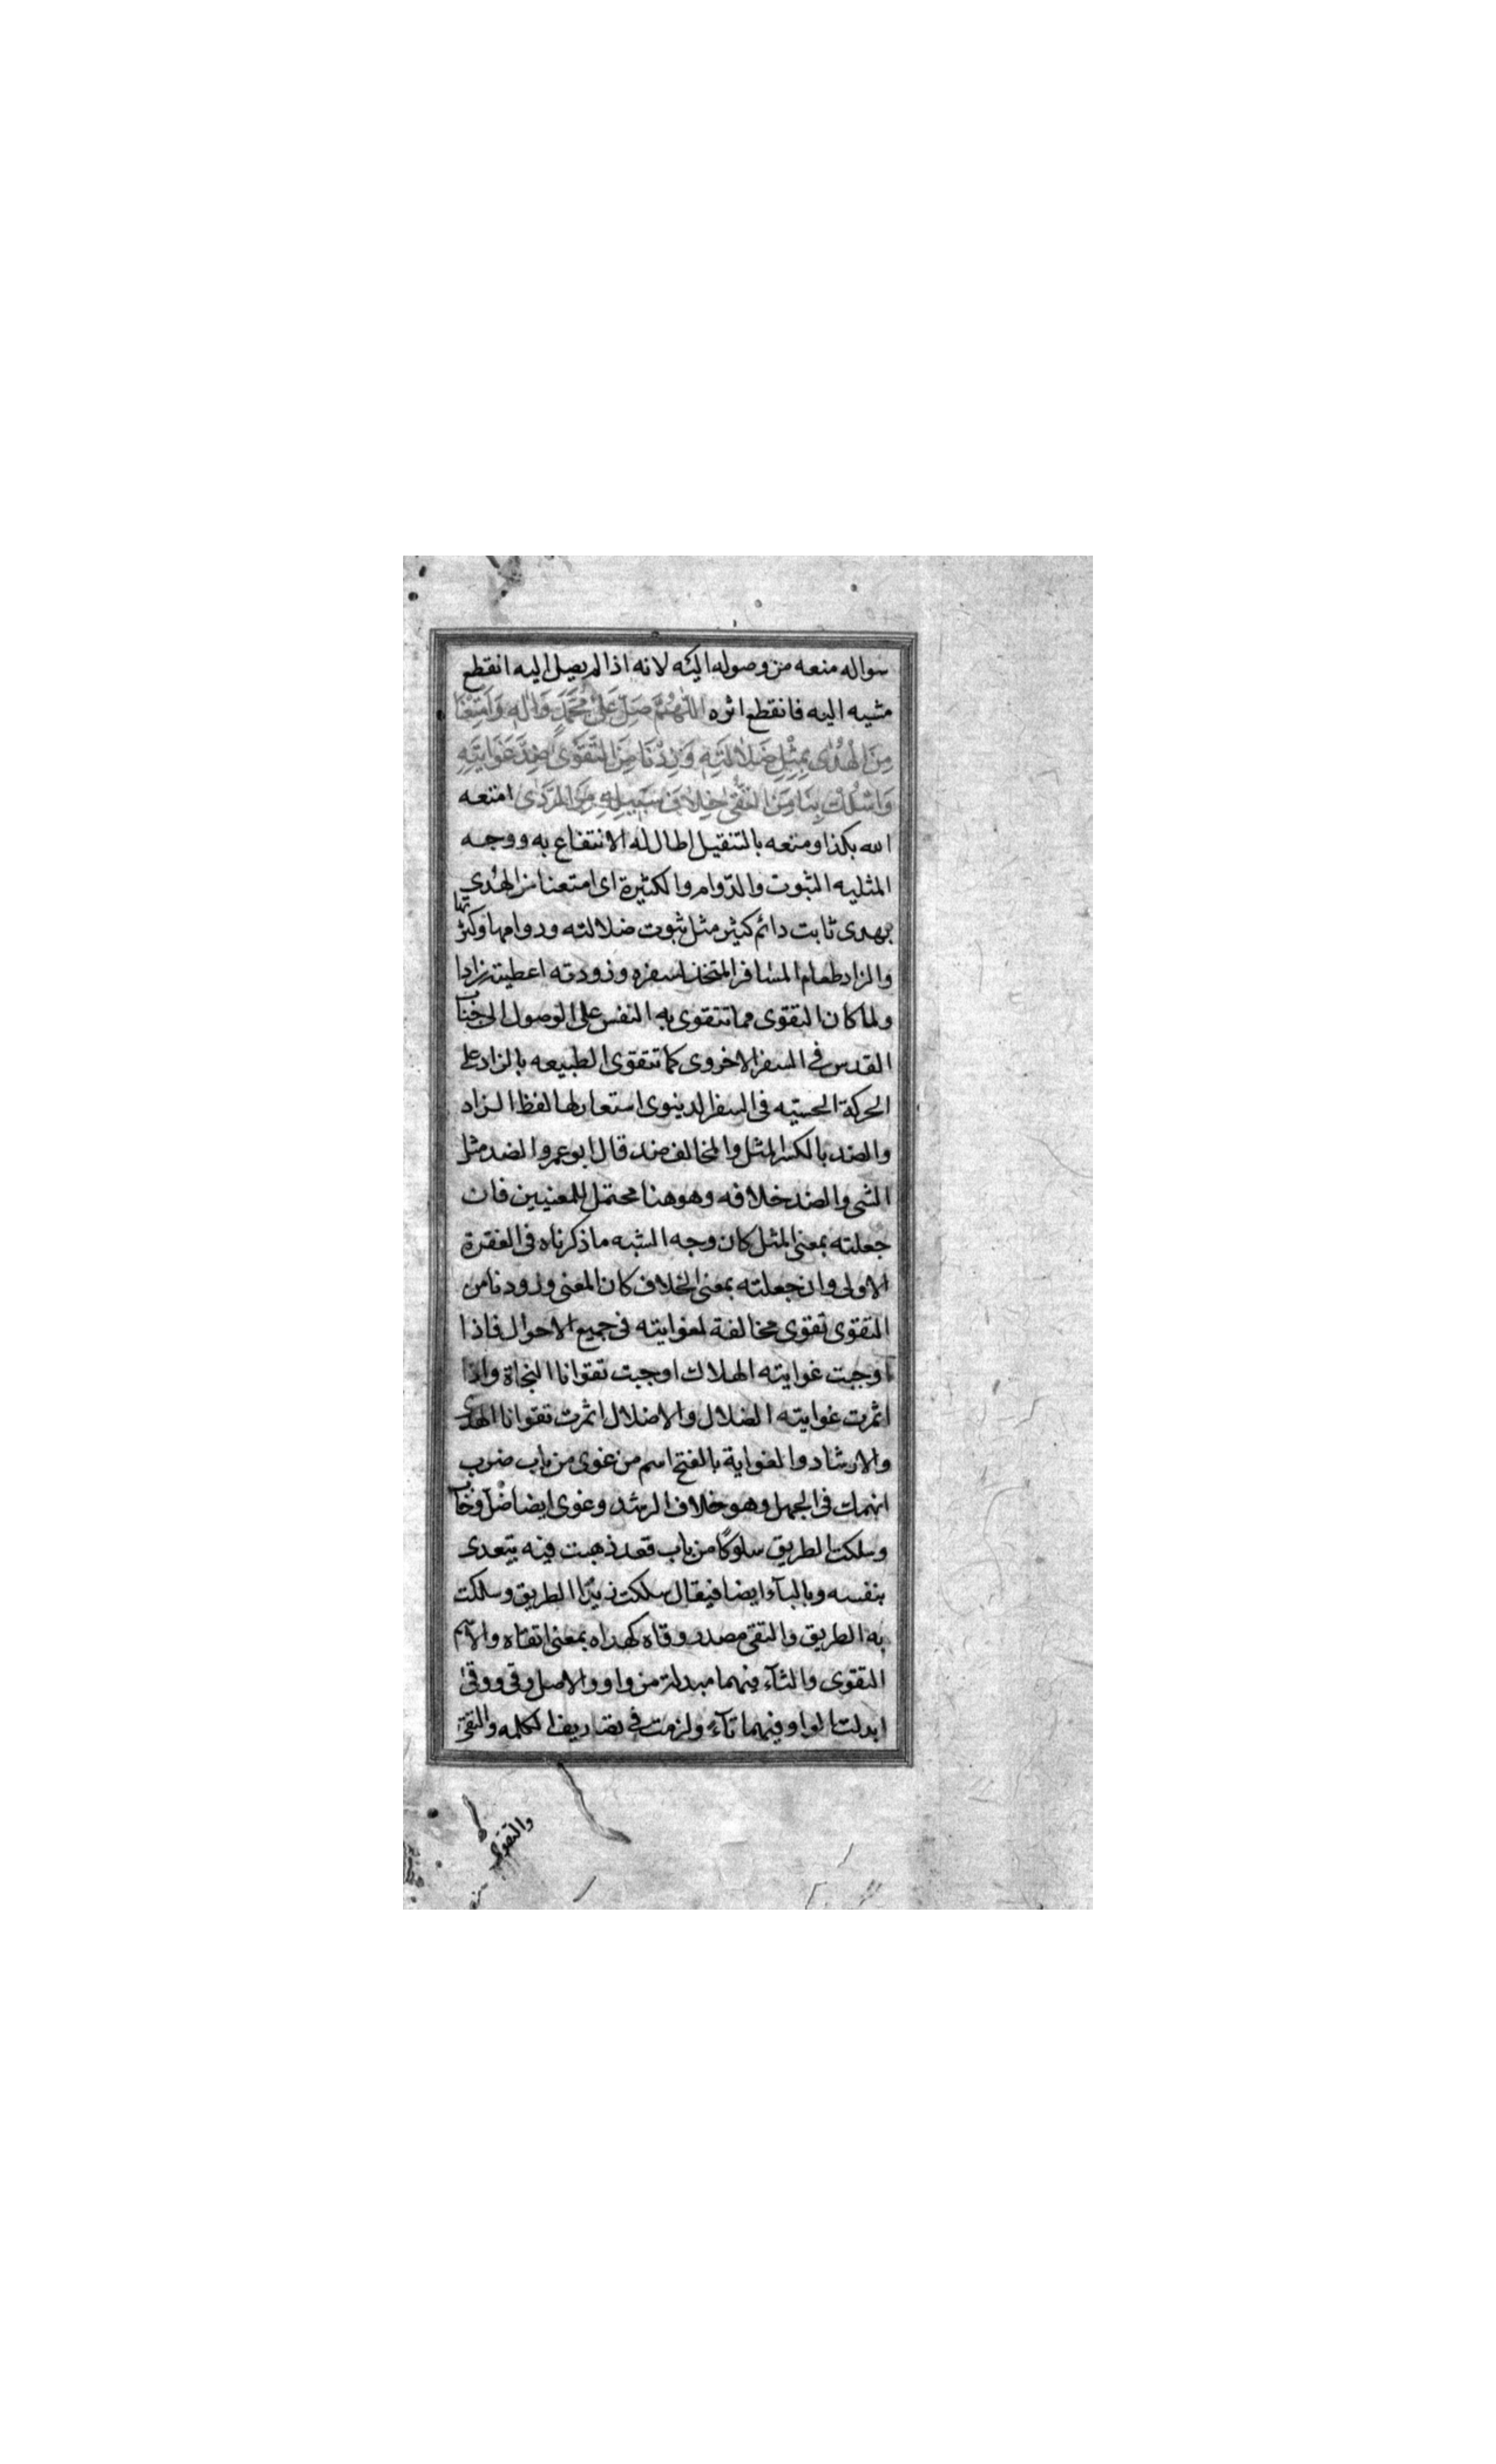 سواله منعه من وصوله اليه لانه اذا لم يصل اليه انقطع
مشيه اليه فانقطع اثره اللّٰهُمَّ صَلِّ عَلٰى مُحَمَّدٍ وَاٰلِهِ وَاَمْتِعْنَا
مِنَ الْهُدٰى بِمِثْلِ ضَلَالَتِهِ وَزَوِّدْنَا مِنَ التَّقْوٰى ضِدَّ غَوَايَتِهِ
وَاسْلُكْ بِنَا مِنَ التُّقٰى خِلَافَ سَبِيلِهِ مِنَ الرَّدٰى امتعه
الله بكذا ومتعه بالتثقيل اطال له الانتفاع به ووجه
المثليه الثبوت والدوام والكثرة اى امتعنا من الهُدى
بهدى ثابت دائم كثير مثل ثبوت ضلالته ودوامها وكثرتها
والزاد طعام المسافر المتخذ لسفره وزودته اعطيته زادا
ولما كان التقوى مما تتقوى به النفس على الوصول الى جناب
القدس فى السفر الاخروى كما تتقوى الطبيعه بالزاد على
الحركة الحسيّه فى السفر الدينوى استعار لها لفظ الزاد
والضد بالكسر المثل والمخالف ضد قال ابو عمرو الضد مثل
الشى والضد خلافه وهو هنا محتمل للمعنيين فان
جعلته بمعنى المثل كان وجه الشبه ما ذكرناه فى الفقرة
الاولى وان جعلته بمعنى الخلاف كان المعنى وزودنا من
التقوى تقوى مخالفة لغوايته فى جميع الاحوال فاذا
اوجبت غوايته الهلاك اوجبت تقوانا النجاة واذا
اثمرت غوايته الضلال والاضلال اثمرت تقوانا الهدى
والارشاد والغواية بالفتح اسم من غوى من باب ضرب
انهمك فى الجهل وهو خلاف الرشد وغوى ايضا ضل وخاب
وسلكت الطريق سلوكًا من باب قعد ذهبت فيه يتعدى
بنفسه وبالبآء ايضا فيقال سلكت زيدًا الطريق وسلكت
به الطريق والتقى مصدر وقاه كهداه بمعنى اتقاه والاسم
التقوى والتآء فيهما مبدلة من واو والاصل وقى ووقى
ابدلت الواو فيهما تآء ولزمت فى تصاريف الكلمه والتقى
والتقوى